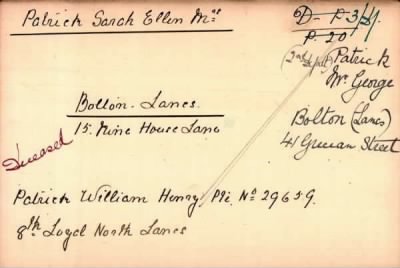 Patrick Sarah Ellen Mrs
D - P 3/21.
P. 20
(2nd
Patrick
Mr. George
Bolton (Lancs)
41 Street
Bolton - Lancs.
15, Nine House Lane
Deceased
Patrick William Henry, Pte. No 29659.
8th Loyal North Lancs